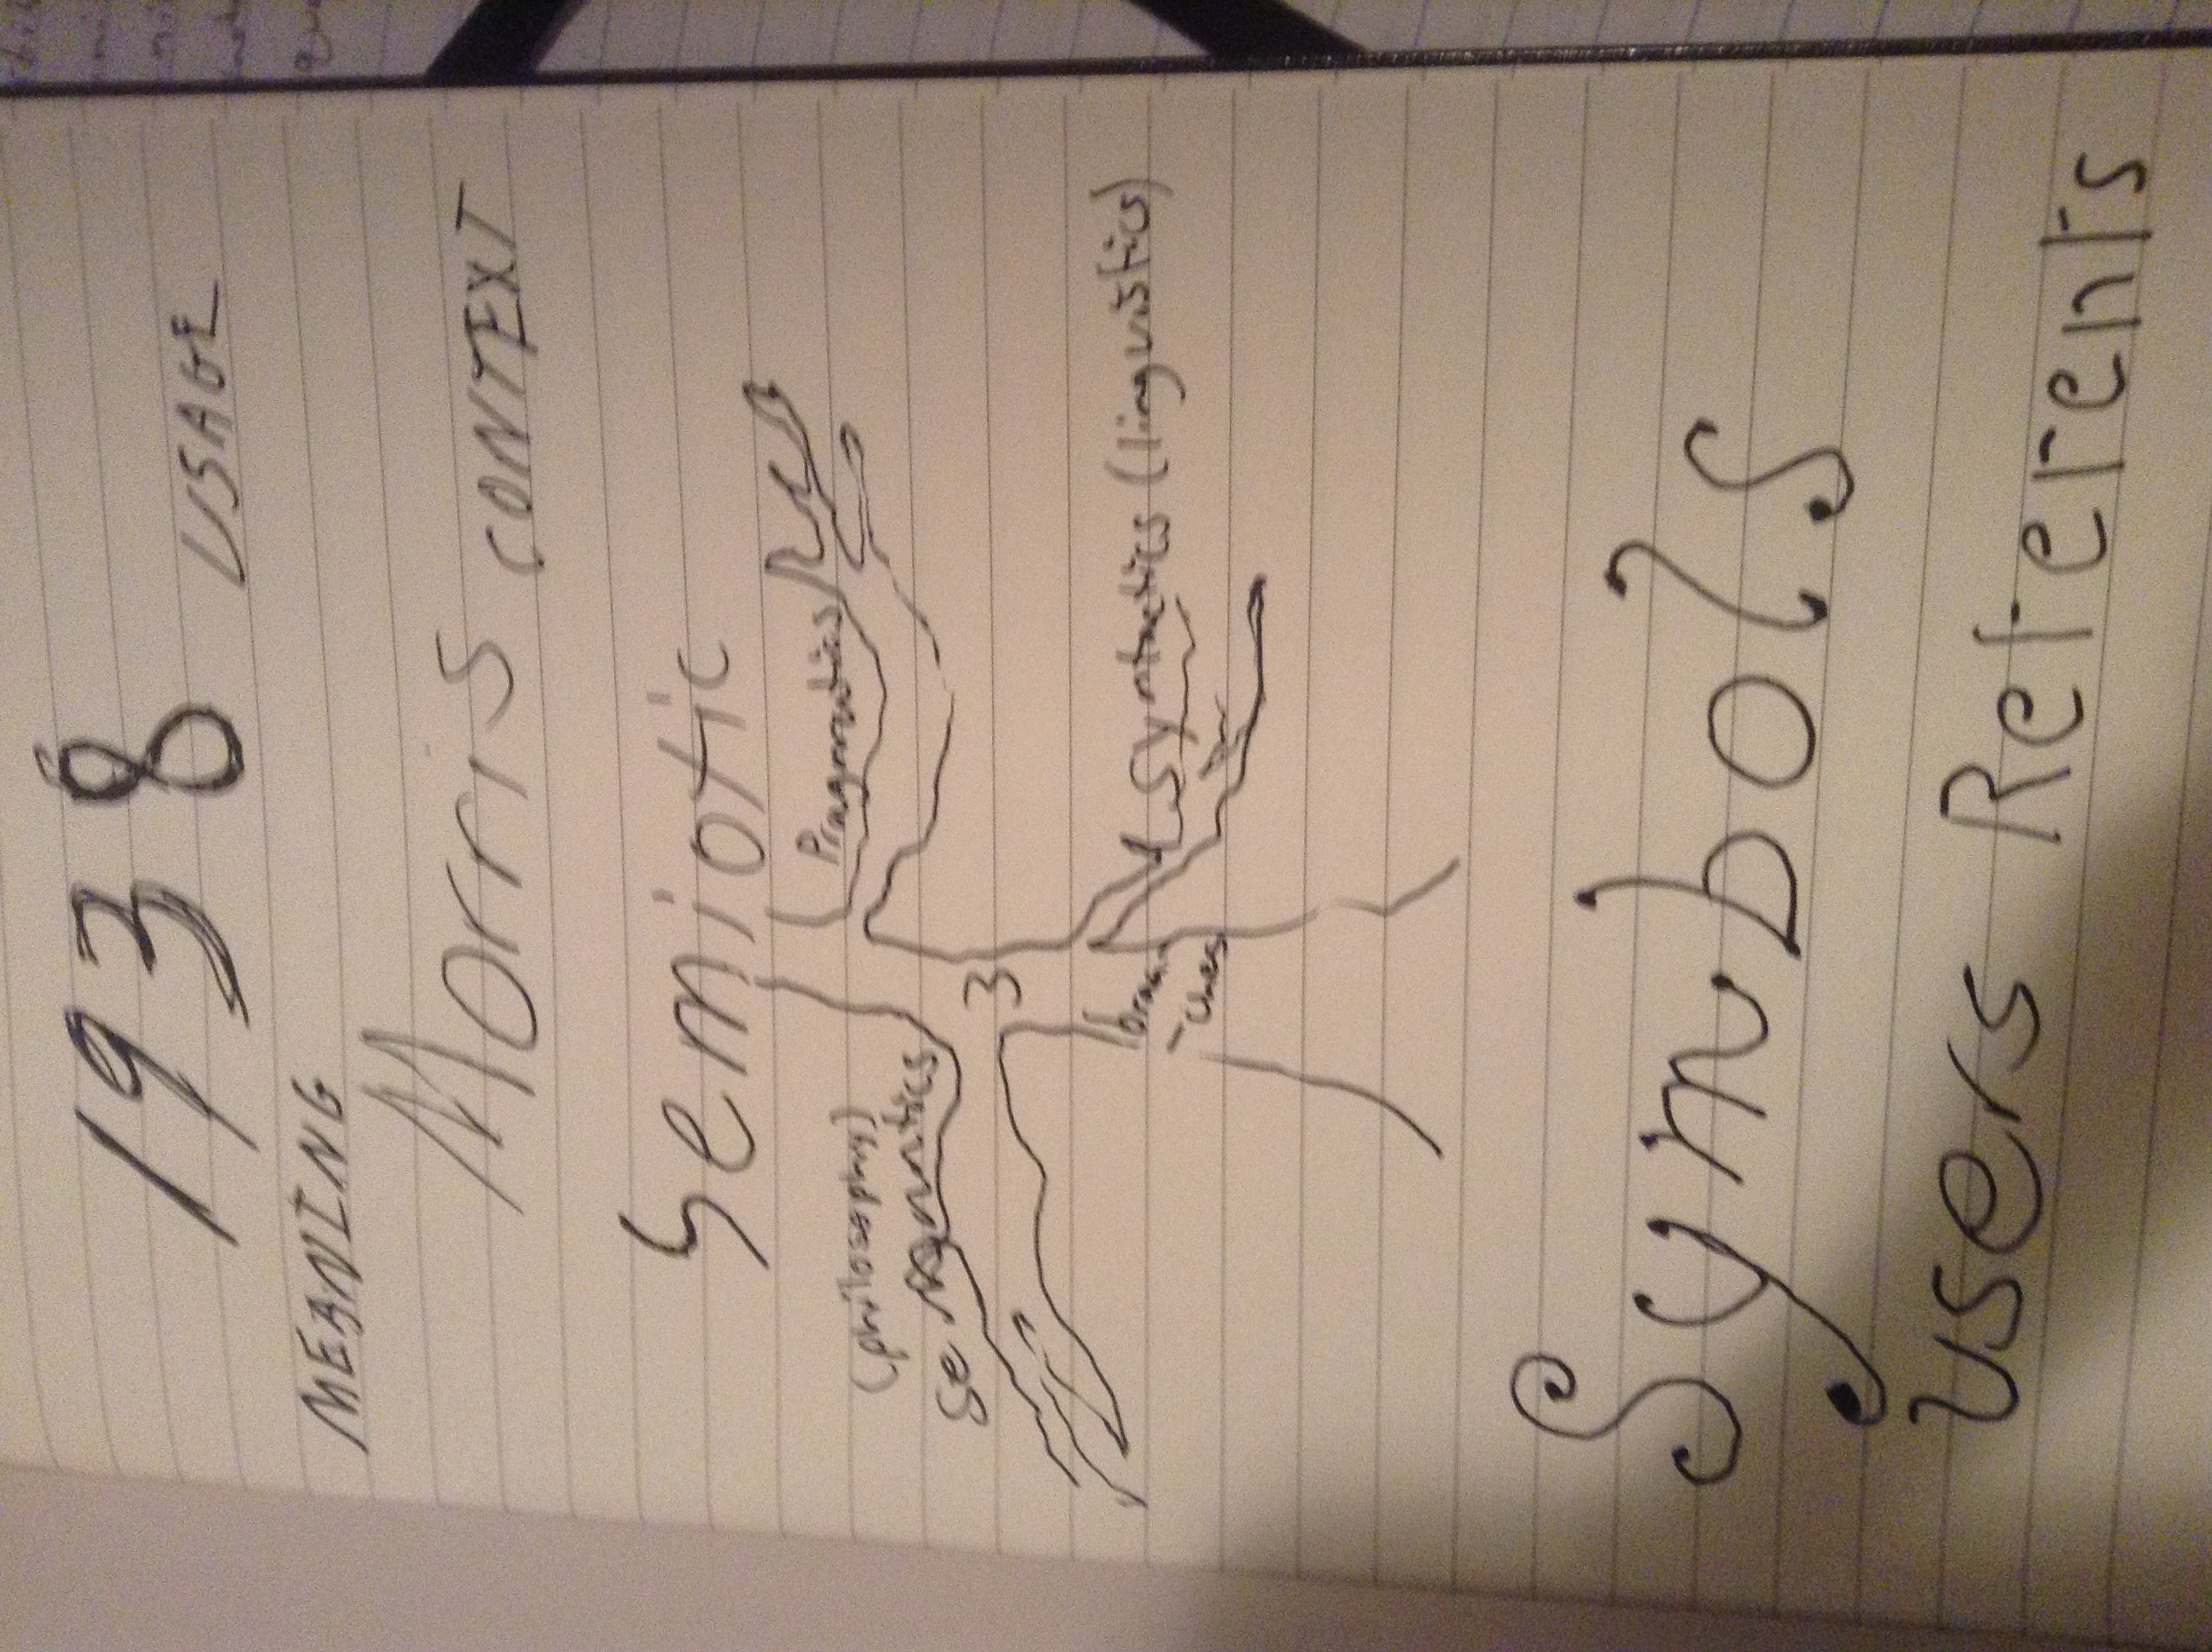 1938 USAGE
MEANING
Morris CONTEXT
Semiotic
Pragmatics
(philosophy)
Semantics
3
bran
-ches
Syntactics (linguistics)
Symbols
users Referents